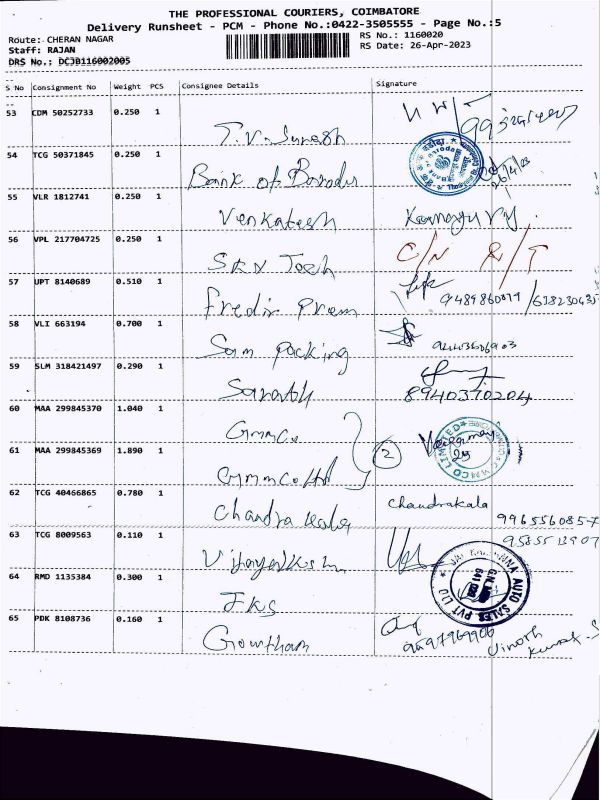 THE PROFESSIONAL COURIERS, COIMBATORE
Delivery Runsheet - PCM - Phone No.:0422-3505555 - Page No.:5
Route: CHERAN NAGAR
RS No.: 1160020
Staff: RAJAN
RS Date: 26-Apr-2023
DRS No.: DCJB116002005
S No Consignment No Weight PCS Consignee Details Signature
53 CDM 50252733 0.250 1 T.V. Suresh
54 TCG 50371845 0.250 1 Bank of Baroda 26/4/23
55 VLR 1812741 0.250 1 Venkatesh
56 VPL 217704725 0.250 1 SRV Tech C/N R/T
57 UPT 8140689 0.510 1 Fredir Prem
58 VLI 663194 0.700 1 Sam packing
59 SLM 318421497 0.290 1 Sarath 8940370204
60 MAA 299845370 1.040 1 Gmmco
61 MAA 299845369 1.890 1 Gmmco Ltd 2
62 TCG 40466865 0.780 1 Chandra kala Chandrakala 9965560857
63 TCG 8009563 0.110 1
64 RMD 1135384 0.300 1 JKS AUTO SALES PVT LTD
65 PDK 8108736 0.160 1 Gowtham Vinoth